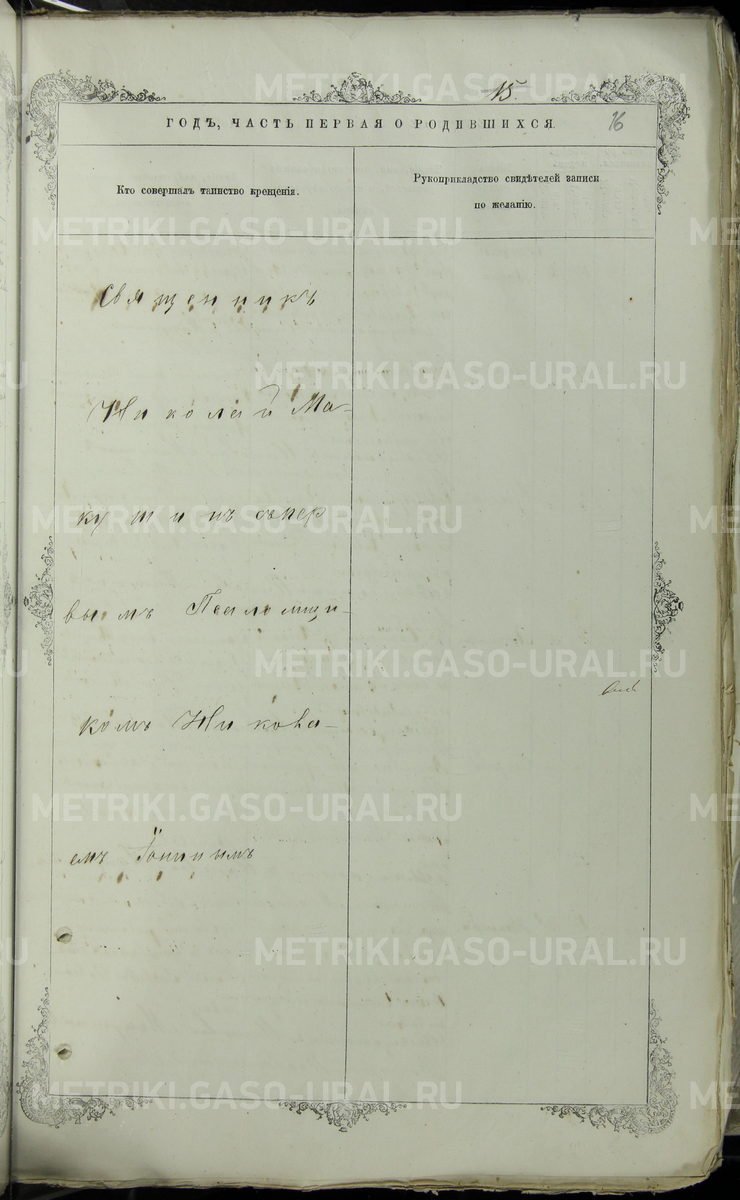 15.
ГОДЪ, ЧАСТЬ ПЕРВАЯ О РОДИВШИХСЯ.
16
Кто совершалъ таинство крещенія.
Рукоприкладство свидѣтелей записи
по желанію.
Священникъ
Николай Ма-
кушинъ съ пер
вымъ Псаломщи-
комъ Никола-
емъ
METRIKI.GASO-URAL.RU
METRIKI.GASO-URAL.RU
METRIKI.GASO-URAL.RU
METRIKI.GASO-URAL.RU
METRIKI.GASO-URAL.RU
METRIKI.GASO-URAL.RU
METRIKI.GASO-URAL.RU
METRIKI.GASO-URAL.RU